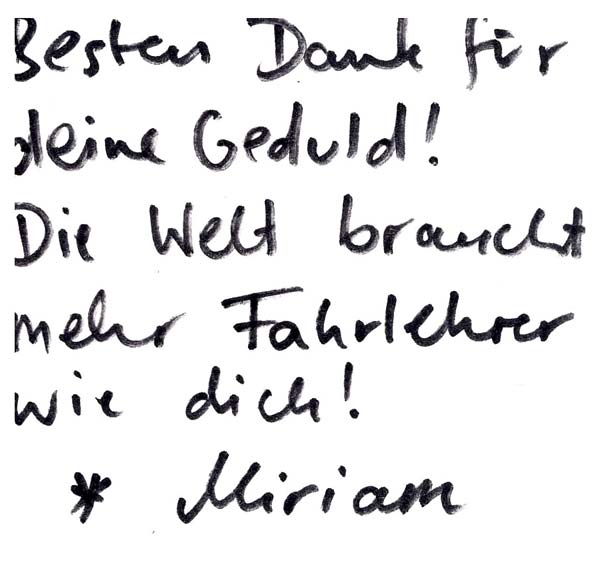 Besten Dank für
deine Geduld!
Die Welt braucht
mehr Fahrlehrer
wie dich!
* Miriam